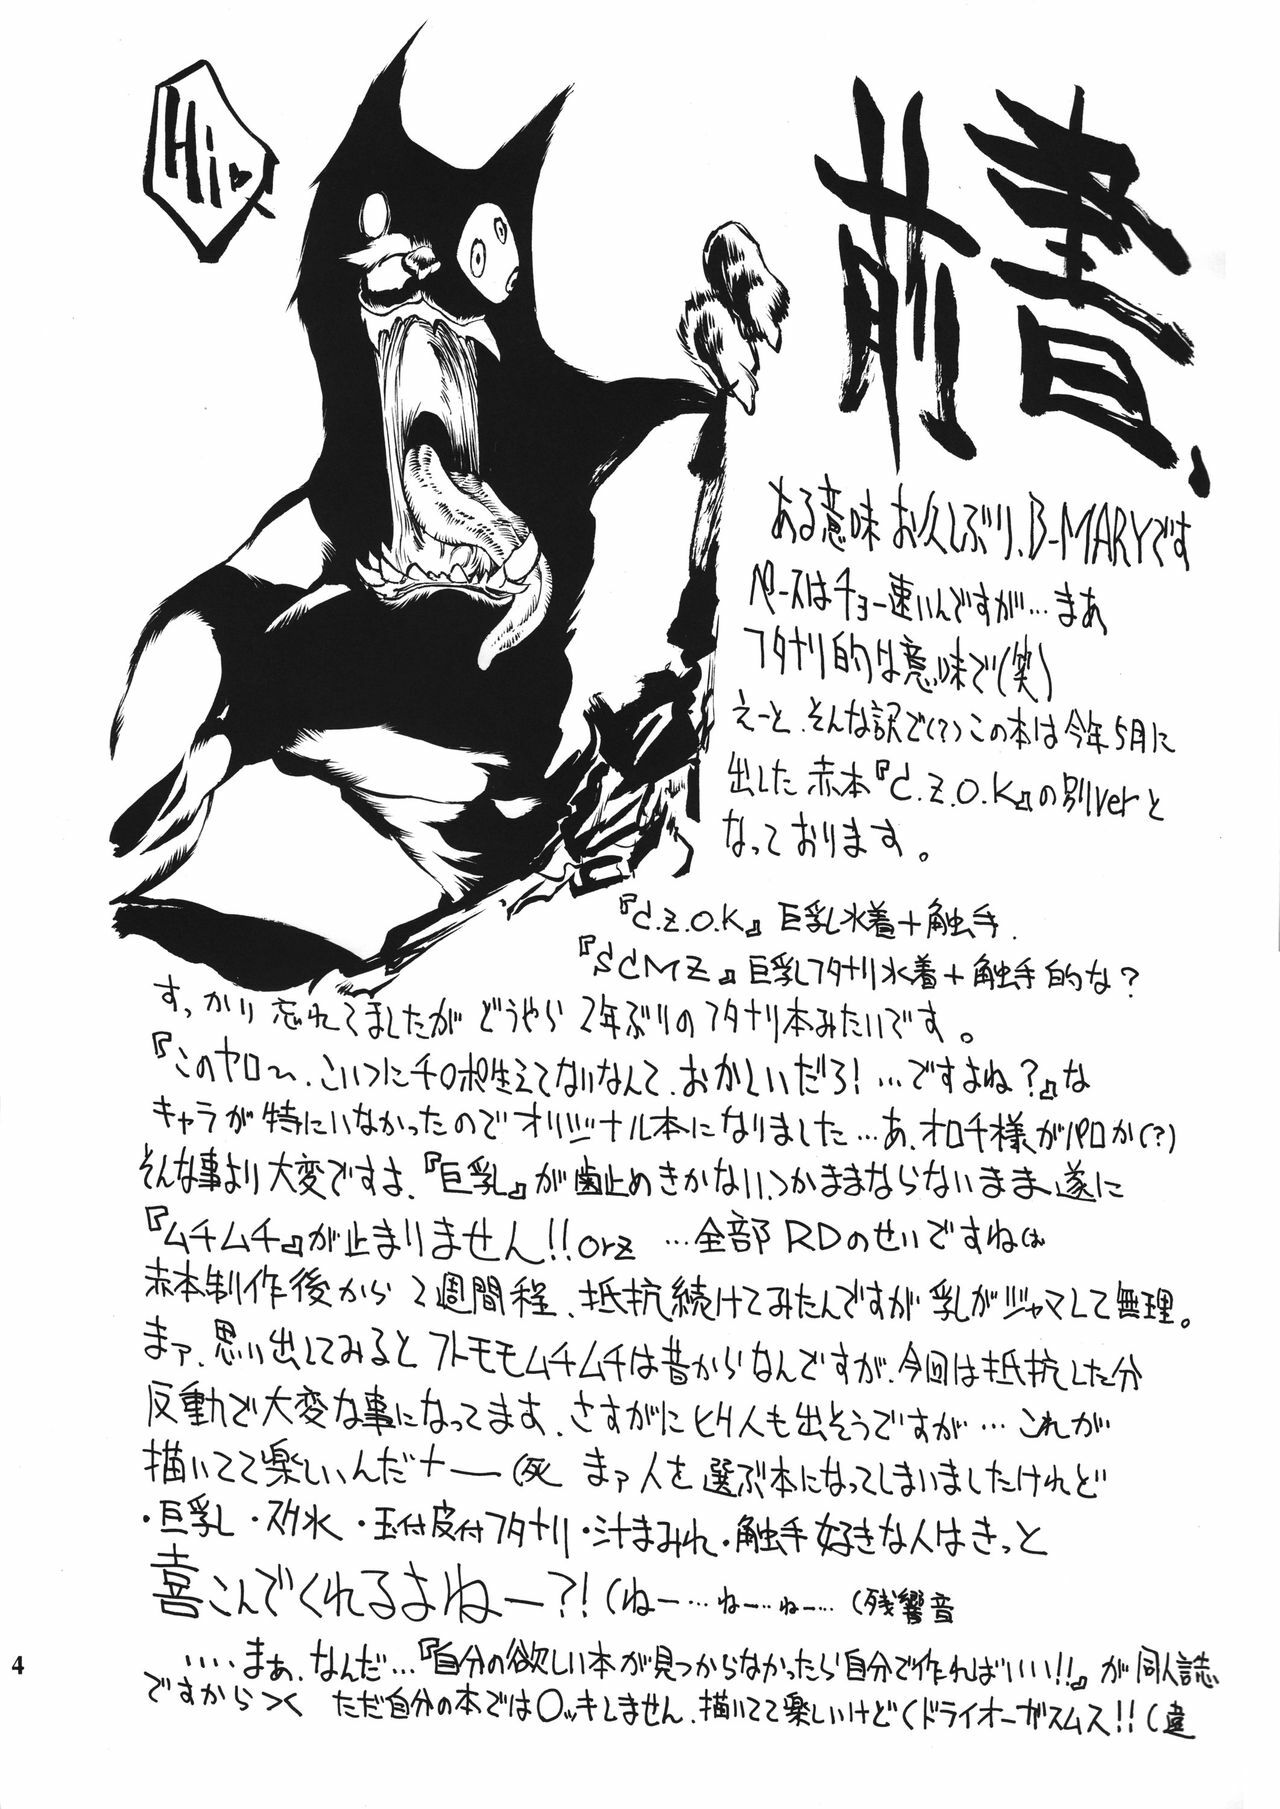 Hi♥
前書、
ある意味お久しぶり、B-MARYです
ペースはチョー速いんですが…まあ
フタナリ的な意味で(笑)
えーと、そんな訳で(?)この本は今年5月に
出した赤本『C.Z.O.K』の別verと
なっております。
『C.Z.O.K』巨乳水着+触手.
『SCMZ』巨乳フタナリ水着+触手的な?
すっかり忘れてましたがどうやら2年ぶりのフタナリ本みたいです。
『このヤロ〜、こいつにチ○ポ生えてないなんて、おかしいだろ!…ですよね?』な
キャラが特にいなかったのでオリジナル本になりました…あ、オロチ様がパロか(?)
そんな事より大変ですよ、『巨乳』が歯止めきかない、つかままならないまま遂に
『ムチムチ』が止まりません!!orz …全部RDのせいですねぱ
赤本制作後から2週間程、抵抗続けてみたんですが乳がジャマして無理。
まァ、思い出してみるとフトモモムチムチは昔からなんですが、今回は抵抗した分
反動で大変な事になってます、さすがにヒク人も出そうですが…これが
描いてて楽しいんだナー(死 まァ人を選ぶ本になってしまいましたけれど
・巨乳・スク水・玉付皮付フタナリ・汁まみれ・触手好きな人はきっと
喜こんでくれるよねー?!(ねー…ねー…ねー…(残響音
….まぁ、なんだ…『自分の欲しい本が見つからなかったら自分で作ればいい!!』が同人誌
ですからっく ただ自分の本では○ッキしません、描いてて楽しいけどくドライオーガスムス!!(違
4